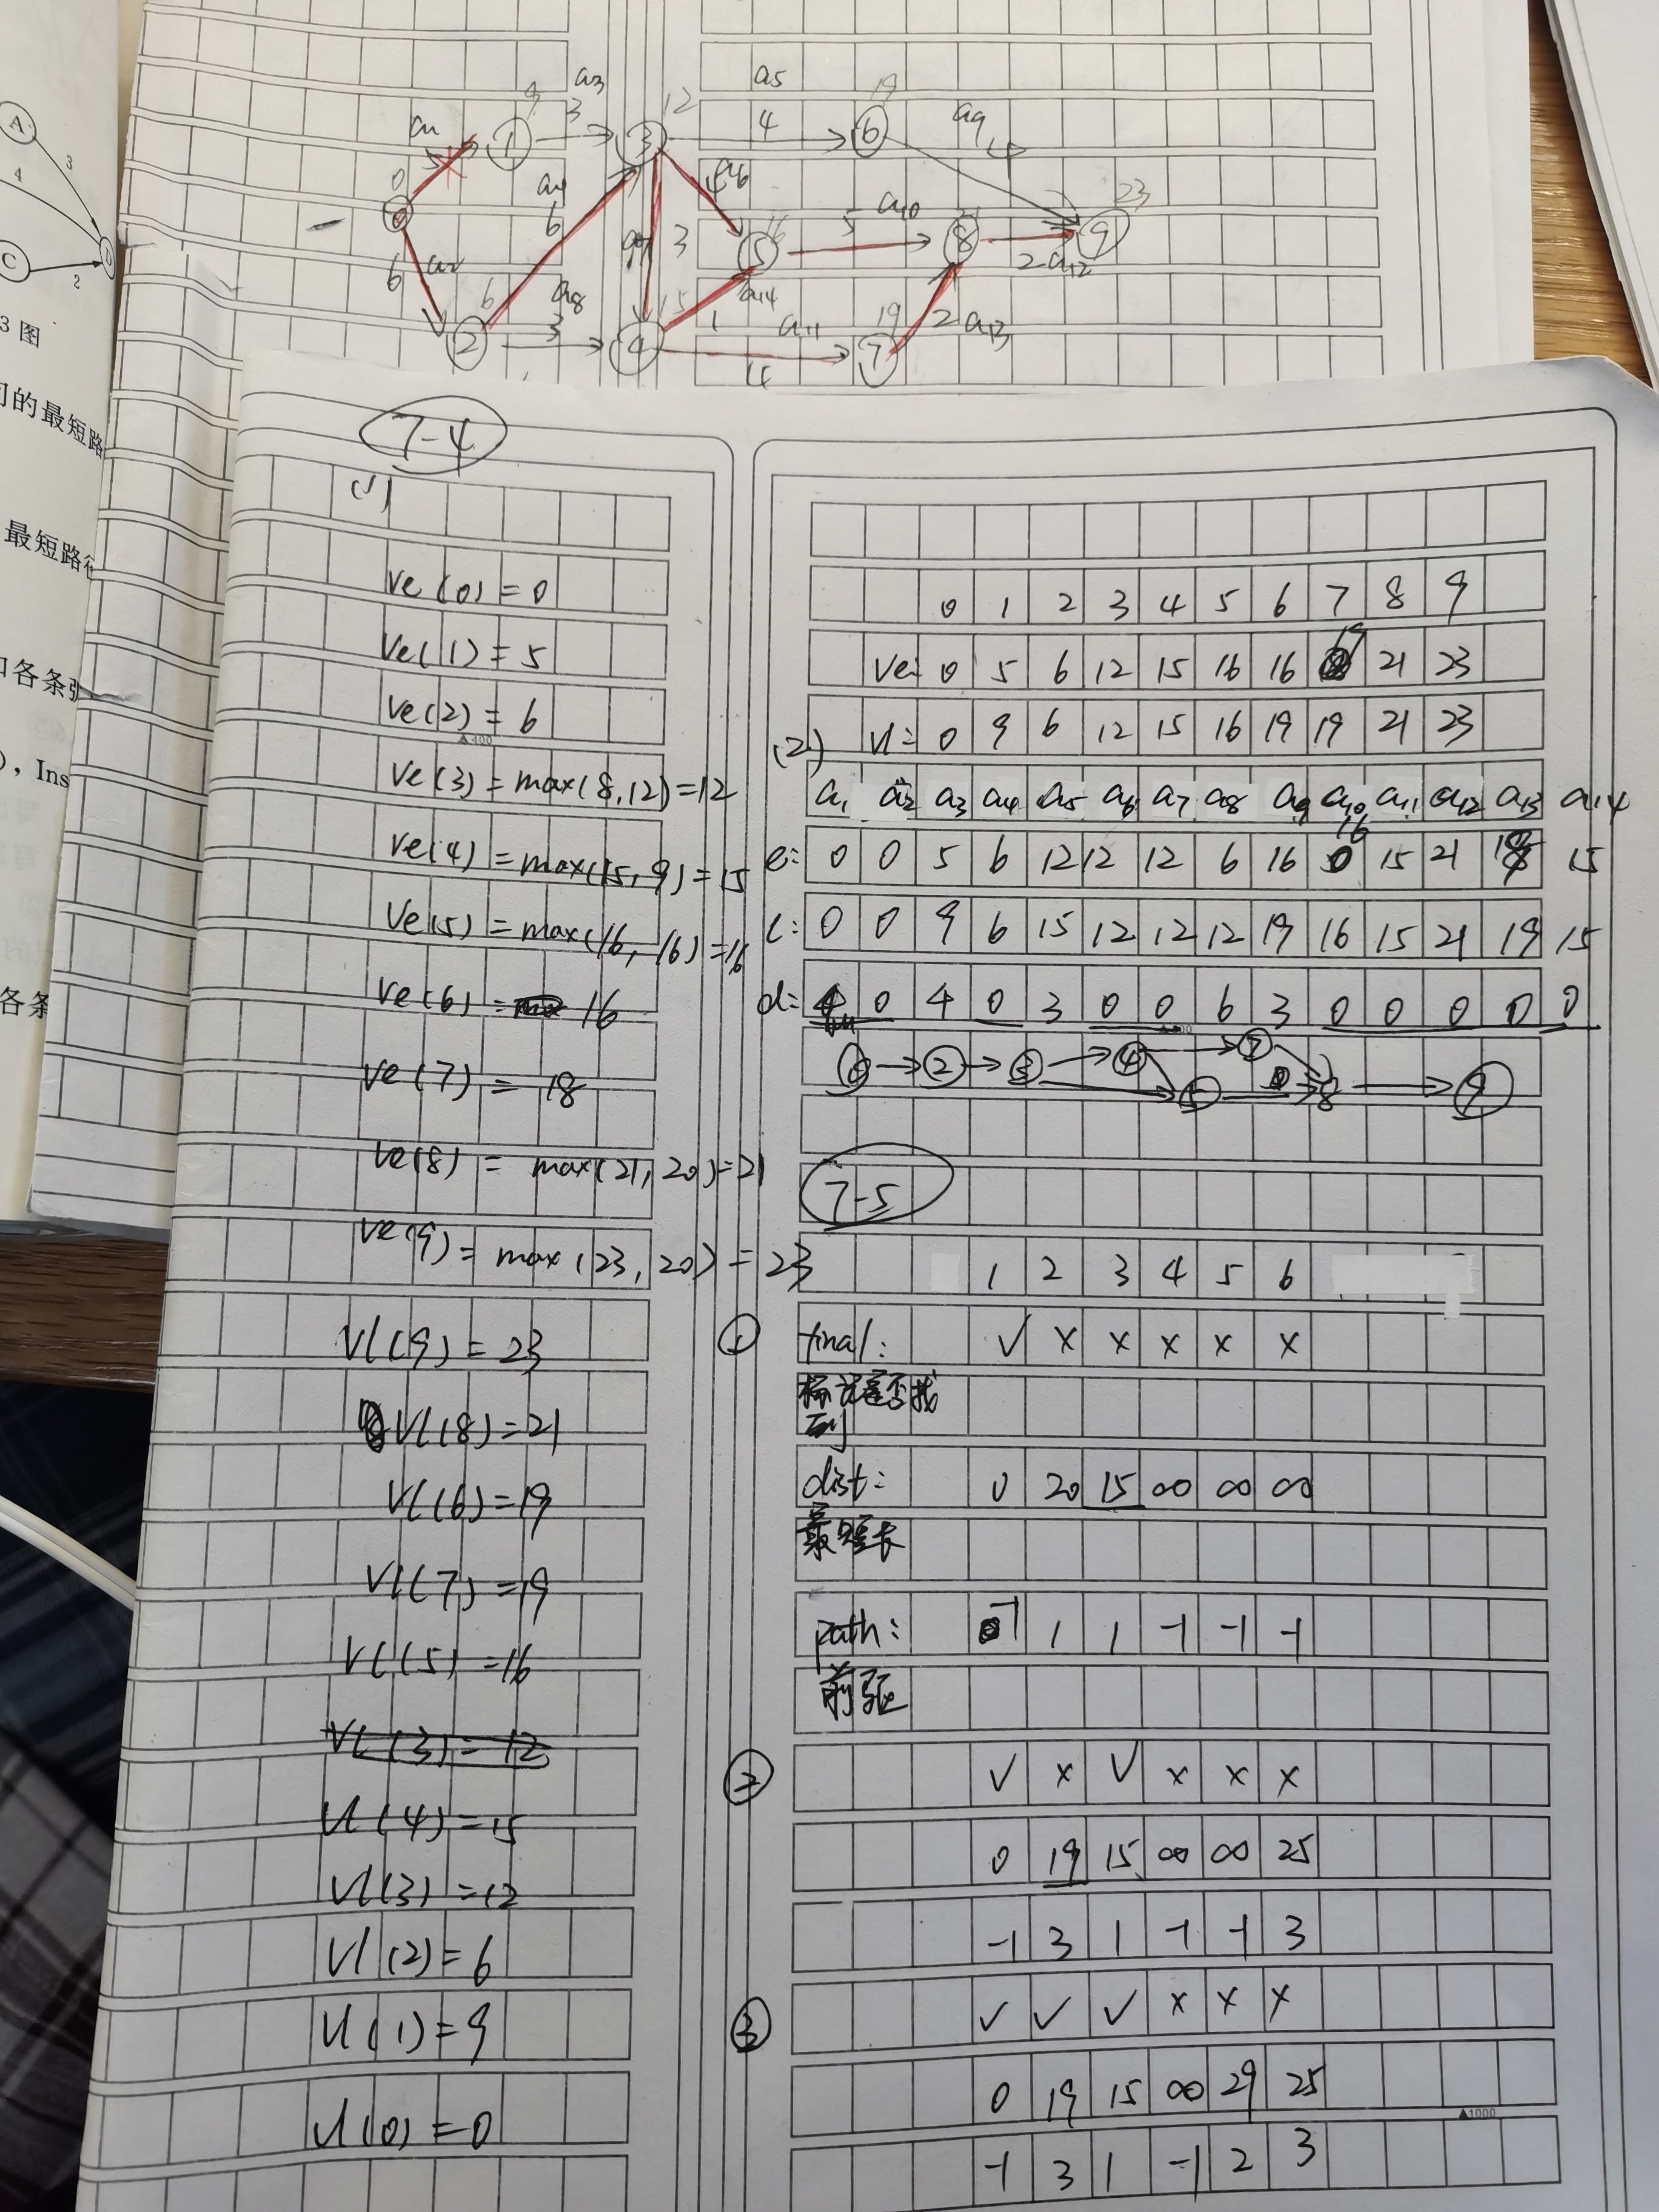 A
3
4
C
D
2
3 图
间的最短路
最短路径
和各条弧
), Ins
各条
a3
a5
3
12
19
9
4
1
3
6
a9
4
5
0
a4
6
a6
23
6
a2
a7
3
5
16
5
a10
8
9
2 a12
6
a8
15
a14
19
2
3
4
1
a11
7
2 a13
4
7-4
(1)
ve(0)=0
ve(1)=5
ve(2)=6
▲400
ve(3)=max(8,12)=12
ve(4)=max(15,9)=15
ve(5)=max(16,16)=16
ve(6)= 16
ve(7) = 18
ve(8) = max(21,20)=21
ve(9)= max(23,20)=23
vl(9)=23
vl(8)=21
vl(6)=19
vl(7)=19
vl(5)=16
vl(3)=12
vl(4)=15
vl(3)=12
vl(2)=6
vl(1)=9
vl(0)=0
0 1 2 3 4 5 6 7 8 9
ve: 0 5 6 12 15 16 16 19 21 23
(2) vl: 0 9 6 12 15 16 19 19 21 23
a1 a2 a3 a4 a5 a6 a7 a8 a9 a10 a11 a12 a13 a14
e: 0 0 5 6 12 12 12 6 16 16 15 21 15
l: 0 0 9 6 15 12 12 12 19 16 15 21 19 15
d: 4 0 4 0 3 0 0 6 3 0 0 0 0 0
0 → 2 → 3 → 4 → 7
5 → 8 → 9
7-5
1 2 3 4 5 6
① final: ✓ × × × × ×
标记是否找
到
dist: 0 20 15 ∞ ∞ ∞
最短长
path: -1 1 1 -1 -1 -1
前驱
② ✓ × ✓ × × ×
0 19 15 ∞ ∞ 25
-1 3 1 -1 -1 3
③ ✓ ✓ ✓ × × ×
0 19 15 ∞ 29 25
▲1000
-1 3 1 -1 2 3